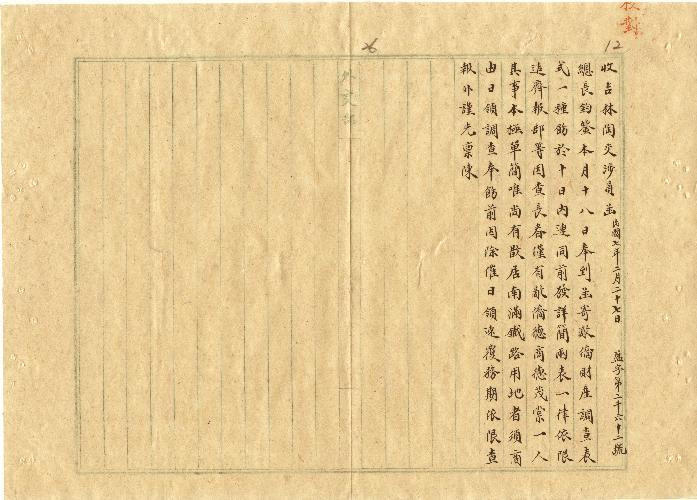 校對
12
26
收吉林陶交涉員函 民國七年二月二十七日
總長鈞鑒本月十八日奉到函寄敵僑財產調查表
式一種飭於十日內連同前發詳簡兩表一律依限
造齊報部等因查長春僅有敵僑德商德茂棠一人
其事本極單簡唯尚有散居南滿鐵路用地者須商
由日領調查奉飭前因除催日領速復務期依限查
報外謹先稟陳
外交部